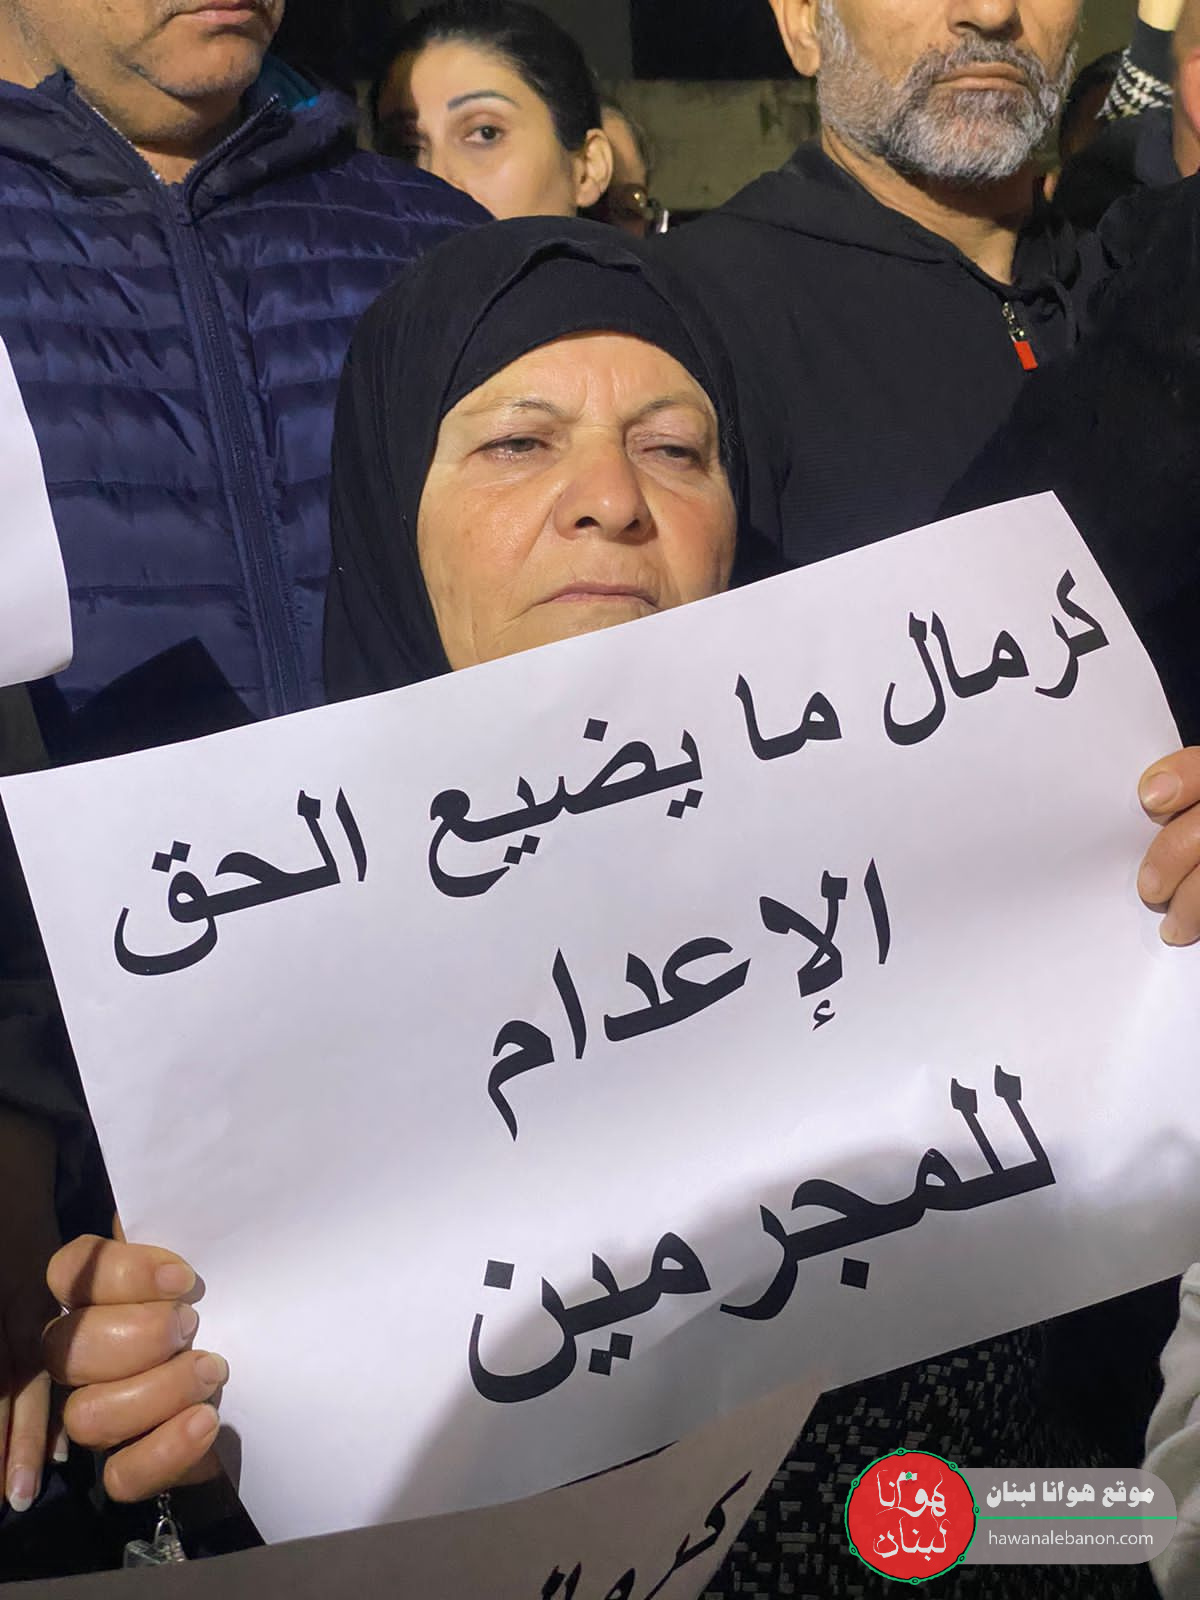 كرمال ما يضيع الحق
الإعدام
للمجرمين
هوانا
لبنان
موقع هوانا لبنان
hawanalebanon.com